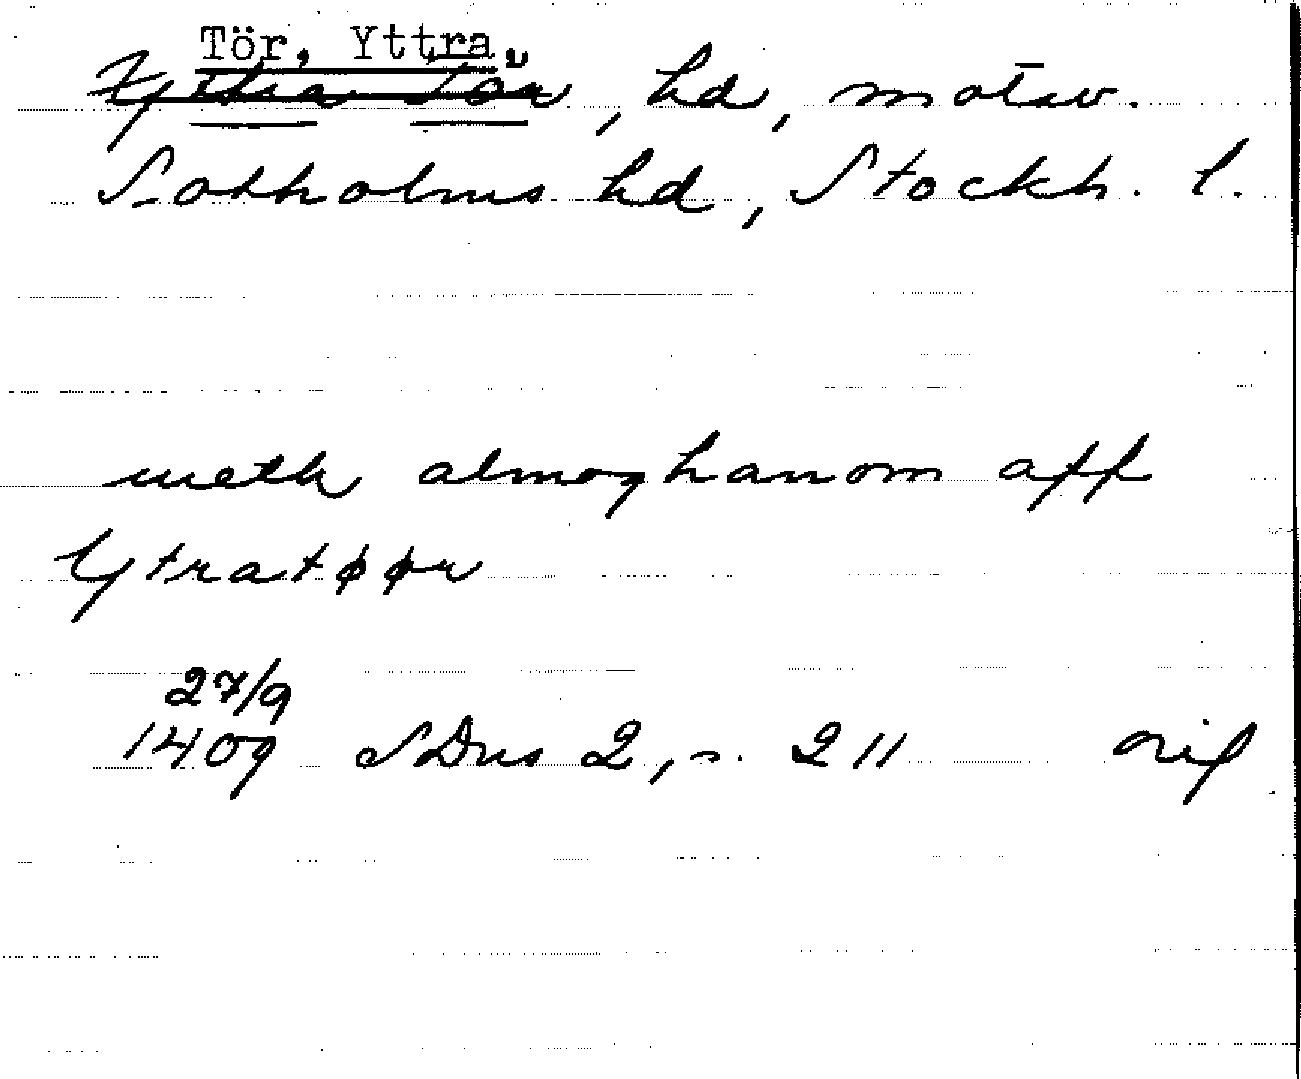 Tör, Yttra,
Yttra Tör, hd, motsv.
Sotholms hd, Stockh. l.
meth almoghanom aff
Ytratøør
27/9
1409 SDns 2, s. 211 orig